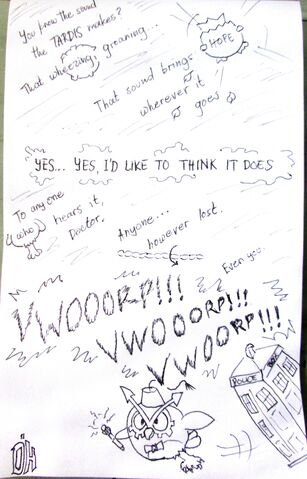 You know the sound
the TARDIS makes?
That wheezing, groaning...
HOPE
That sound brings
wherever it
goes
YES... YES, I'D LIKE TO THINK IT DOES
To anyone
who hears it,
Doctor.
Anyone...
however lost.
Even you.
VWOOORP!!!
VWOOORP!!!
VWOORP!!!
POLICE